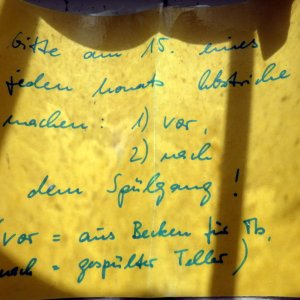 Bitte am 15. eines
jeden Monats Abstriche
machen: 1) vor,
2) nach
dem Spülgang!
(vor = aus Becken für Mb,
nach = gespülter Teller)